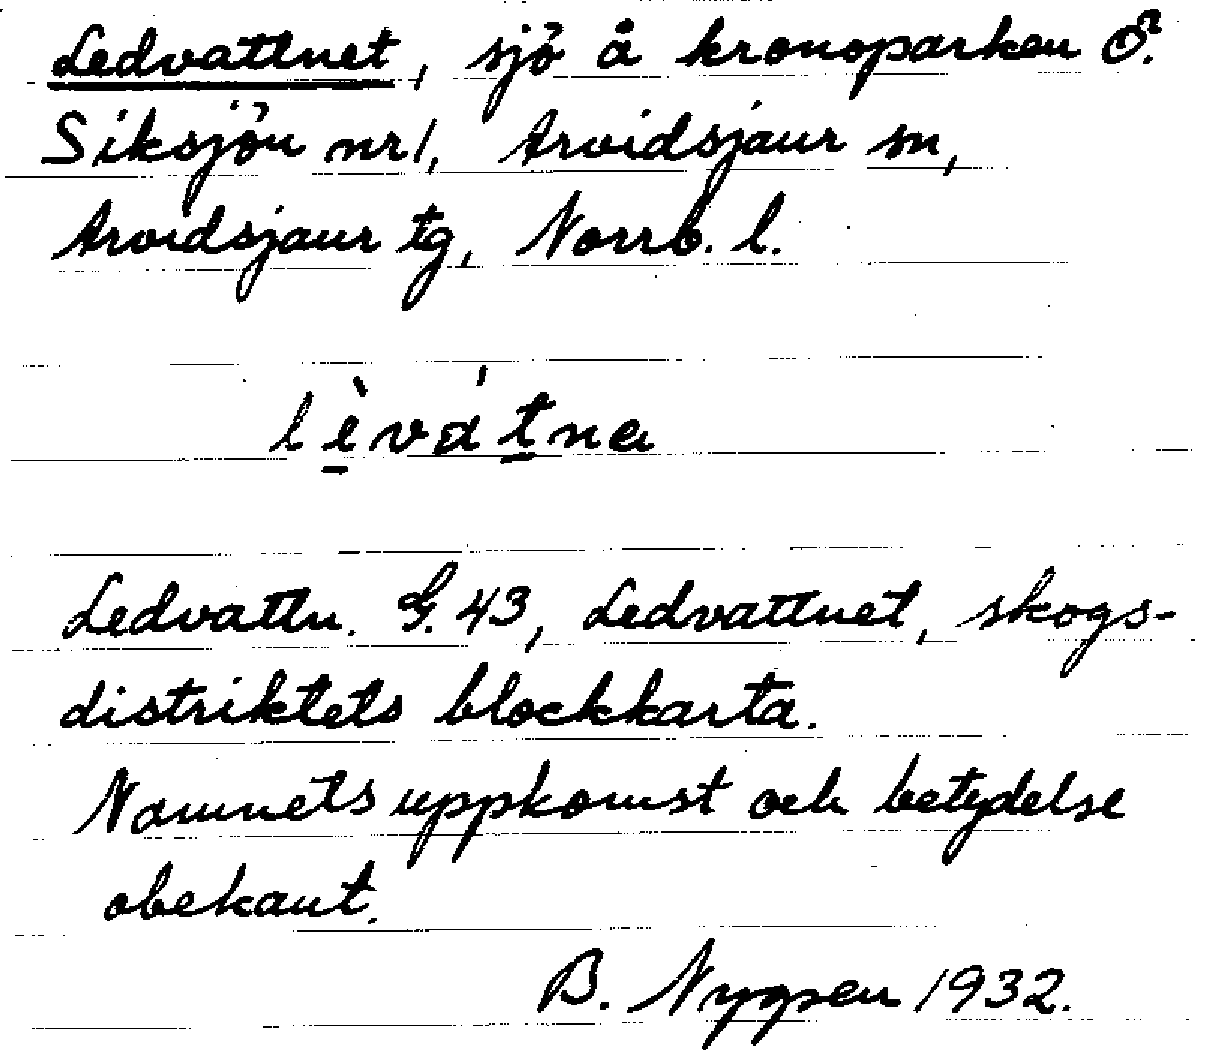 Ledvattnet, sjö å kronoparken Ö.
Siksjön nr 1, Arvidsjaur sn,
Arvidsjaur tg, Norrb. l.
lèvátnɐ
Ledvattn. G. 43, Ledvattnet, skogs-
distriktets blockkarta.
Namnets uppkomst och betydelse
obekant.
B. Nygren 1932.